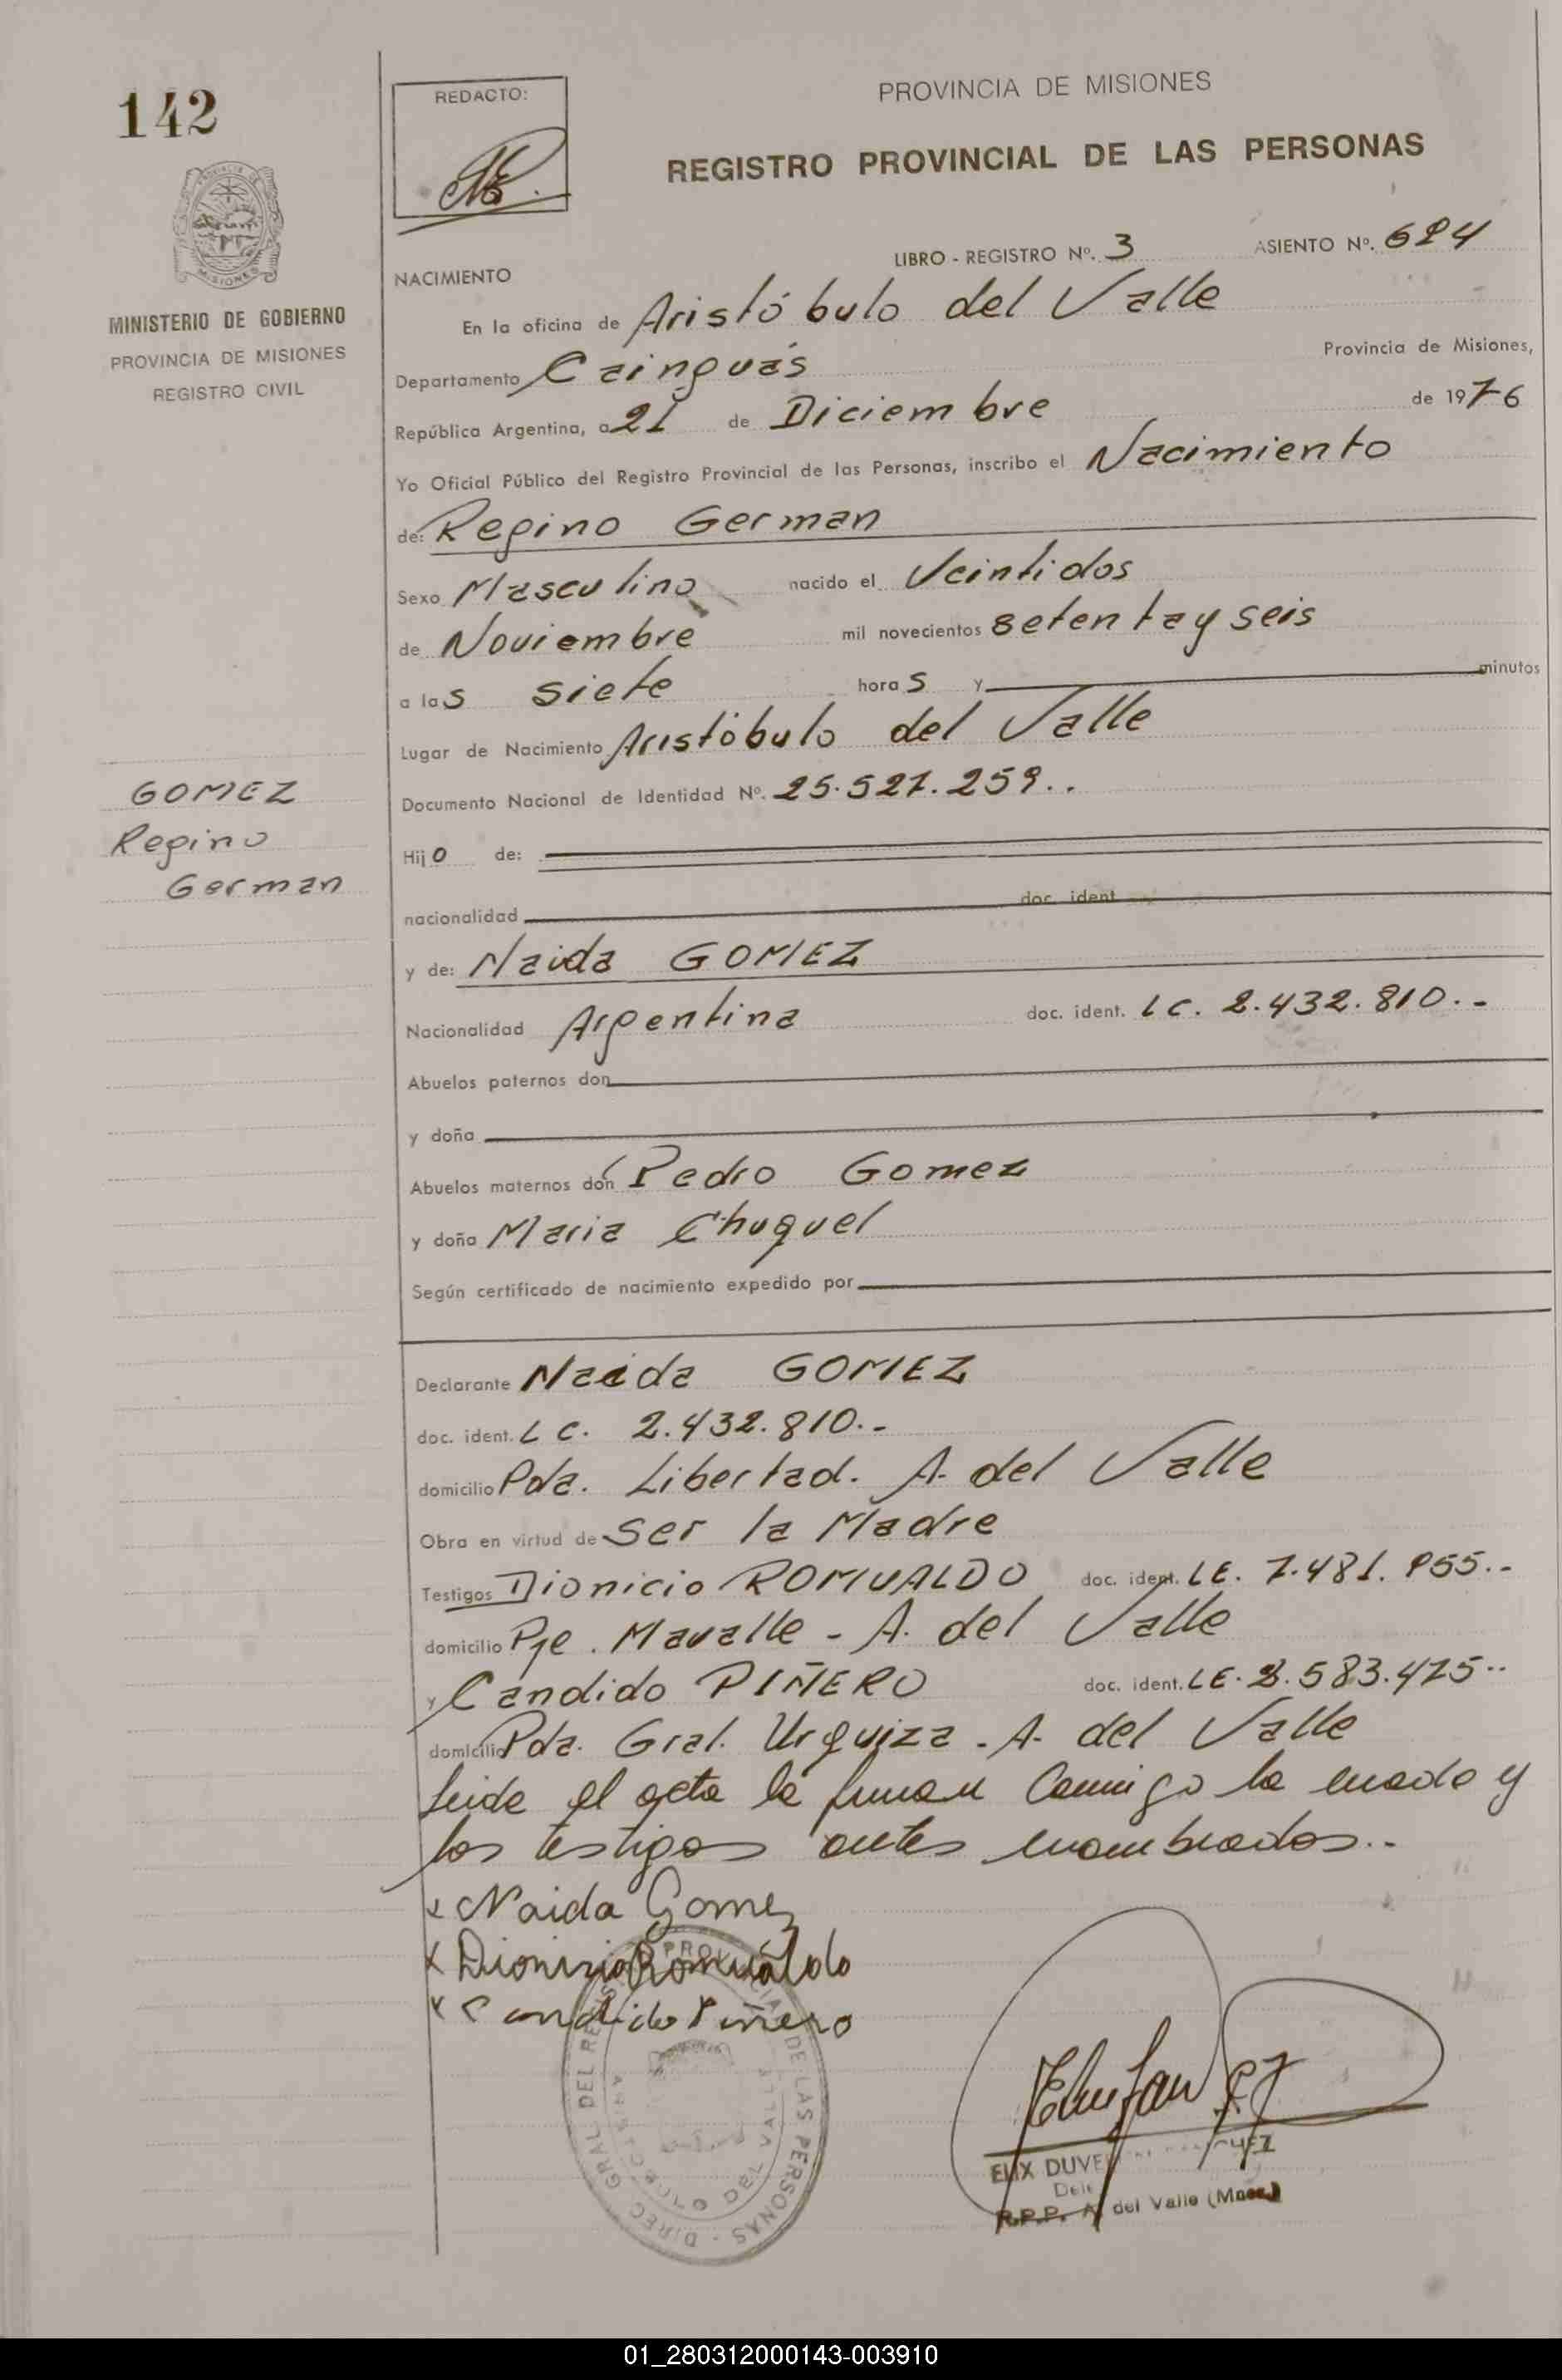 142
REDACTO:
PROVINCIA DE MISIONES
REGISTRO PROVINCIAL DE LAS PERSONAS
MISIONES
MINISTERIO DE GOBIERNO
PROVINCIA DE MISIONES
REGISTRO CIVIL
LIBRO - REGISTRO Nº. 3 ASIENTO Nº. 624
NACIMIENTO
En la oficina de Aristóbulo del Valle
Departamento Cainguás Provincia de Misiones,
República Argentina, a 21 de Diciembre de 1976
Yo Oficial Público del Registro Provincial de las Personas, inscribo el Nacimiento
de: Regino German
Sexo Masculino nacido el Veintidos
de Noviembre mil novecientos setenta y seis
a las siete horas y minutos
Lugar de Nacimiento Aristóbulo del Valle
Documento Nacional de Identidad Nº. 25.527.259..
GOMEZ
Regino
German
Hijo de:
nacionalidad doc. ident
y de: Naida GOMEZ
Nacionalidad Argentina doc. ident. LC. 2.432.810.-
Abuelos paternos don
y doña
Abuelos maternos don Pedro Gomez
y doña Maria Chuquel
Según certificado de nacimiento expedido por
Declarante Naida GOMEZ
doc. ident. LC. 2.432.810.-
domicilio Pda. Libertad. A. del Valle
Obra en virtud de Ser la Madre
Testigos Dionicio ROMUALDO doc. ident. LE. 7.481.955.-
domicilio Pje. Mavalle - A. del Valle
y Candido PIÑERO doc. ident. LE. 8.583.475..
domicilio Pda. Gral. Urquiza - A. del Valle
Leida el acta la firman Conmigo la madre y
los testigos antes nombrados..
x Naida Gomez
x Dionizio Romualdo
x Candido Piñero
DIREC. GRAL. DEL REGIS PROVINCIAL DE LAS PERSONAS
ARISTOBULO DEL VALLE
ELIX DUVE
Dele
R.P.P. A. del Valle (Mnes.)
01_280312000143-003910